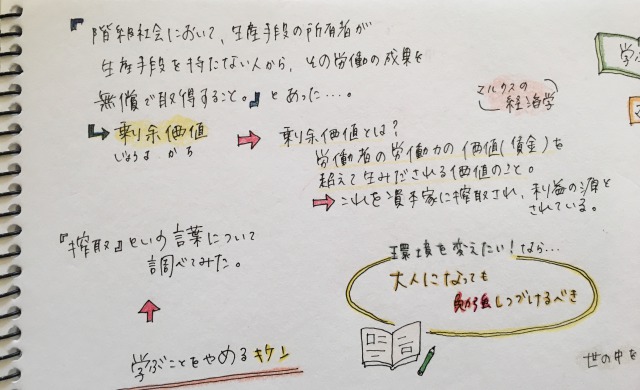 『階級社会において、生産手段の所有者が
生産手段を持たない人から、その労働の成果を
無償で取得すること。』とあった…。
マルクスの
経済学
剰余価値
じょうよ かち
剰余価値とは?
労働者の労働力の価値(賃金)を
超えて生みだされる価値のこと。
これを資本家に搾取され、利益の源と
されている。
『搾取』という言葉について
調べてみた。
学ぶことをやめるキケン
環境を変えたい!なら…
大人になっても
勉強しつづけるべき
学ぶ
世の中を